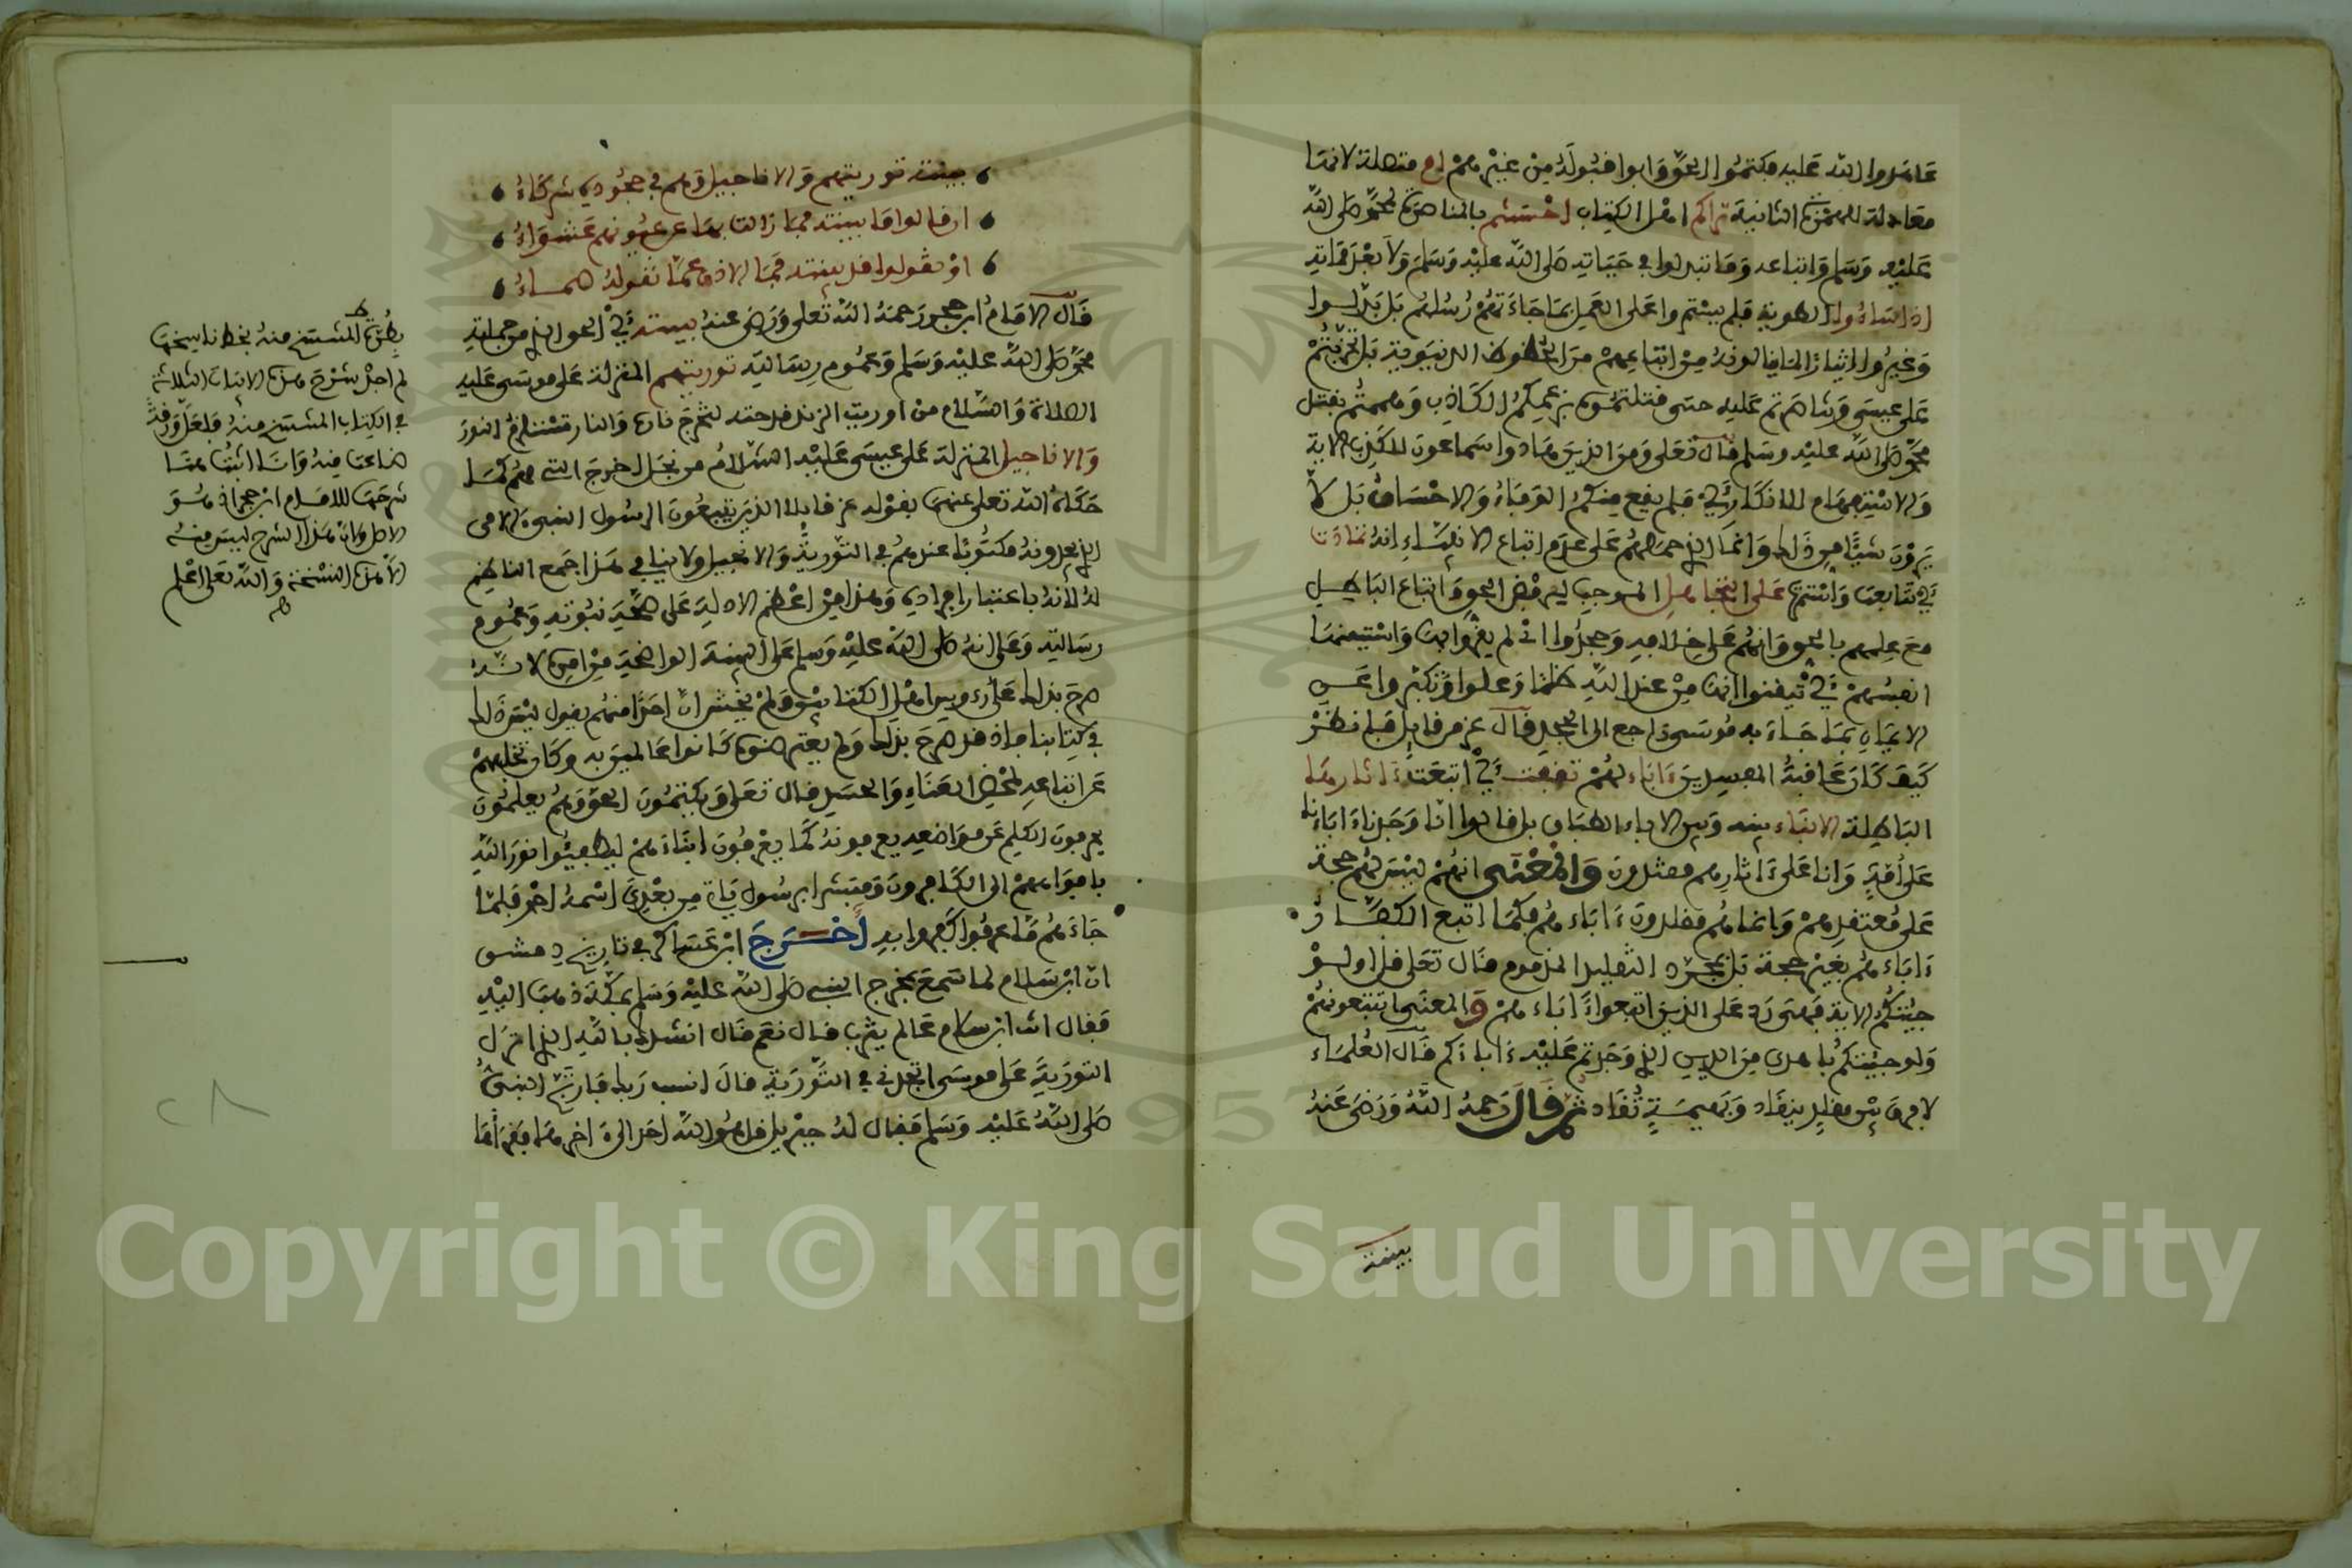 عاهدوا الله عليه فكتموا الحق وابوا قبوله من غيرهم ام متصلة لانها
معادلة للهمزة الثانية تراكم اهل الكتاب احسنتم بالمناصرة لمحمد صلى الله
عليه وسلم واتباعه وما تبدلوا في حياته صلى الله عليه وسلم ولا بعد مماته
اذ اساءوا الطوية فلم يبيتوا على العمل بما جاءتهم رسلهم بل بدلوا
وغيروا ايثارا لما ينالونه من اتباعهم من الحظوظ الدنيوية بل تحزبتم
على عيسى وتمالأتم عليه حتى قتلتموه بزعمكم الكاذب وهممتم بقتل
محمد صلى الله عليه وسلم قال تعلى ومن الذين هادوا سماعون للكذب الاية
والاستفهام للانكار اي فلم يقع منكم الوفاء والاحسان بل لا
يرون شيئا من ذلك وانما الذي حملهم على عدم اتباع الانبياء انه تمادت
اي تتابعت واستمرت على التجاهل الموجب لرفض الحق واتباع الباطل
مع علمهم بالحق وانهم على خلافه وجحدوا اي لم يقروا بها واستيقنتها
انفسهم اي تيقنوا انها من عند الله ظلما وعلوا وتكبروا عن
الايمان بما جاء به موسى راجع الى الجحد قال عز من قايل فانظر
كيف كان عاقبة المفسدين ءاباءهم تقفت اي اتبعت ءاثارها
الباطلة الابناء بنيه وبين الاباء الطباق بل قالوا انا وجدنا ءاباءنا
على أمة وانا على ءاثارهم مهتدون والمعنى انهم ليس لهم حجة
على معتقدهم وانما هم مقلدون ءاباءهم فكما اتبع الكفار
ءاباءهم بغير حجة بل بمجرد التقليد المذموم قال تعلى قل اولو
جيتكم الاية فهي رد على الذين اتبعوا ءاباءهم والمعنى اتتبعونهم
ولو جيتكم باهدى من الدين الذي وجدتم عليه ءاباءكم قال العلماء
لا فرق بين مقلد ينقاد وبهيمة تقاد ثم قال رحمه الله ورضي عنه
بينته
بينته توريتهم والاناجيل وهم في جحوده شركاء
ان قالوا ما بينته فما زالت بها عن عيونهم عشواء
او يقولوا قد بينته فما للاذن عما تقوله صماء
قال الامام ابن حجر رحمه الله تعلى ورضي عنه بينته اي الحق الذي من جملته
محمد صلى الله عليه وسلم وعموم رسالته توريتهم المنزلة على موسى عليه
الصلاة والسلام من اوريت الزند قدحته لتخرج ناره والنار تستلزم النور
والاناجيل المنزلة على عيسى عليه السلام من نجل اخرج التي هم كما
حكاه الله تعلى عنهم بقوله عز قايلا الذين يتبعون الرسول النبي الامي
الذي يجدونه مكتوبا عندهم في التورية والانجيل ولا ينافي هذا جمع الناظم
له لانه باعتبار افراده وهذا من اعظم الادلة على صحة نبوته وعموم
رسالته وعلى انه صلى الله عليه وسلم على البينة الواضحة من امره لانه
صرح بذلك على رءوس اهل الكتابين ولم يخش ان احدا منهم يقول ليس ذلك
في كتابنا فاذ قد صرح بذلك ولم يعترضوه كانوا عالمين به وكان تخلفهم
عن اتباعه لمحض العناد والحسد قال تعلى ويكتمون الحق وهم يعلمون
يحرفون الكلم عن مواضعه يعرفونه كما يعرفون ابناءهم ليطفئوا نور الله
بافواههم الى الكافرون ومبشرا برسول ياتي من بعدي اسمه احمد فلما
جاءهم ما عرفوا كفروا به أخرج ابن عساكر في تاريخ دمشق
ان ابن سلام لما سمع بمخرج النبي صلى الله عليه وسلم بمكة ذهب اليه
فقال انت ابن سلام عالم يثرب قال نعم قال انشدك بالله الذي انزل
التورية على موسى اتجدني في التورية قال انسب ربك فارتج النبي
صلى الله عليه وسلم فقال له جبريل قل هو الله احد الى ءاخرها فقرأها
بطرة المستنسخ منه بخط ناسخها
لم اجد شرح هذه الابيات الثلاثة
في الكتاب المستنسخ منه فلعل ورقة
ضاعت منه وانا اثبت هنا
شرحها للامام ابن حجر اذ هو
الاصل وان هذا الشرح ليس منه
الا هذه النسخة والله تعلى اعلم
Copyright © King Saud University
1957